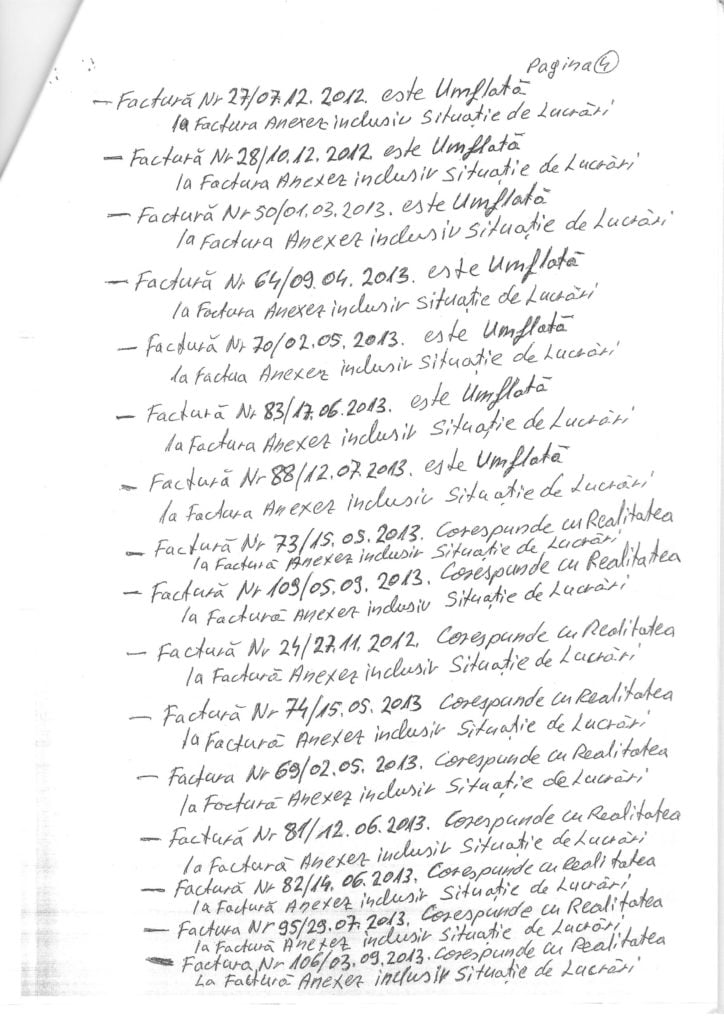 Pagina 4
— Factură Nr 27/07.12.2012. este Umflată
la Factura Anexez inclusiv Situație de Lucrări
— Factură Nr 28/10.12.2012. este Umflată
la Factura Anexez inclusiv Situație de Lucrări
— Factură Nr 50/01.03.2013. este Umflată
la Factura Anexez inclusiv Situație de Lucrări
— Factură Nr 64/09.04.2013. este Umflată
la Factura Anexez inclusiv Situație de Lucrări
— Factură Nr 70/02.05.2013. este Umflată
la Factua Anexez inclusiv Situație de Lucrări
— Factură Nr 83/17.06.2013. este Umflată
la Factura Anexez inclusiv Situație de Lucrări
— Factură Nr 88/12.07.2013. este Umflată
la Factura Anexez inclusiv Situație de Lucrări
— Factură Nr 73/15.05.2013. Corespunde cu Realitatea
la Factură Anexez inclusiv Situație de Lucrări
— Factură Nr 109/05.09.2013. Corespunde cu Realitatea
la Factură Anexez inclusiv Situație de Lucrări
— Factură Nr 24/27.11.2012. Corespunde cu Realitatea
la Factură Anexez inclusiv Situație de Lucrări
— Factură Nr 74/15.05.2013 Corespunde cu Realitatea
la Factură Anexez inclusiv Situație de Lucrări
— Factura Nr 69/02.05.2013. Corespunde cu Realitatea
la Factură Anexez inclusiv Situație de Lucrări
— Factură Nr 81/12.06.2013. Corespunde cu Realitatea
la Factură Anexez inclusiv Situație de Lucrări
— Factură Nr 82/14.06.2013. Corespunde cu Realitatea
la Factură Anexez inclusiv Situație de Lucrări
— Factura Nr 95/29.07.2013. Corespunde cu Realitatea
la Factură Anexez inclusiv Situație de Lucrări
— Factura Nr 106/03.09.2013. Corespunde cu Realitatea
La Factură Anexez inclusiv Situație de Lucrări